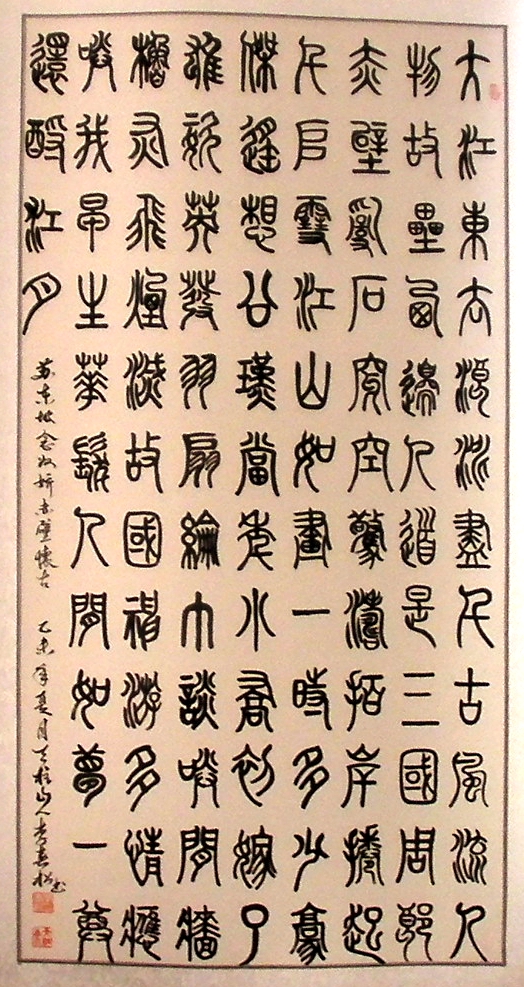 大江東去浪淘盡千古風流人
物故壘西邊人道是三國周郎
赤壁亂石穿空驚濤拍岸捲起
千堆雪江山如畫一時多少豪
傑遙想公瑾當年小喬初嫁了
雄姿英發羽扇綸巾談笑間檣
櫓灰飛煙滅故國神游多情應
笑我早生華髮人間如夢一尊
還酹江月
苏东坡念奴娇赤壁懷古 乙未年夏月天柱山人书